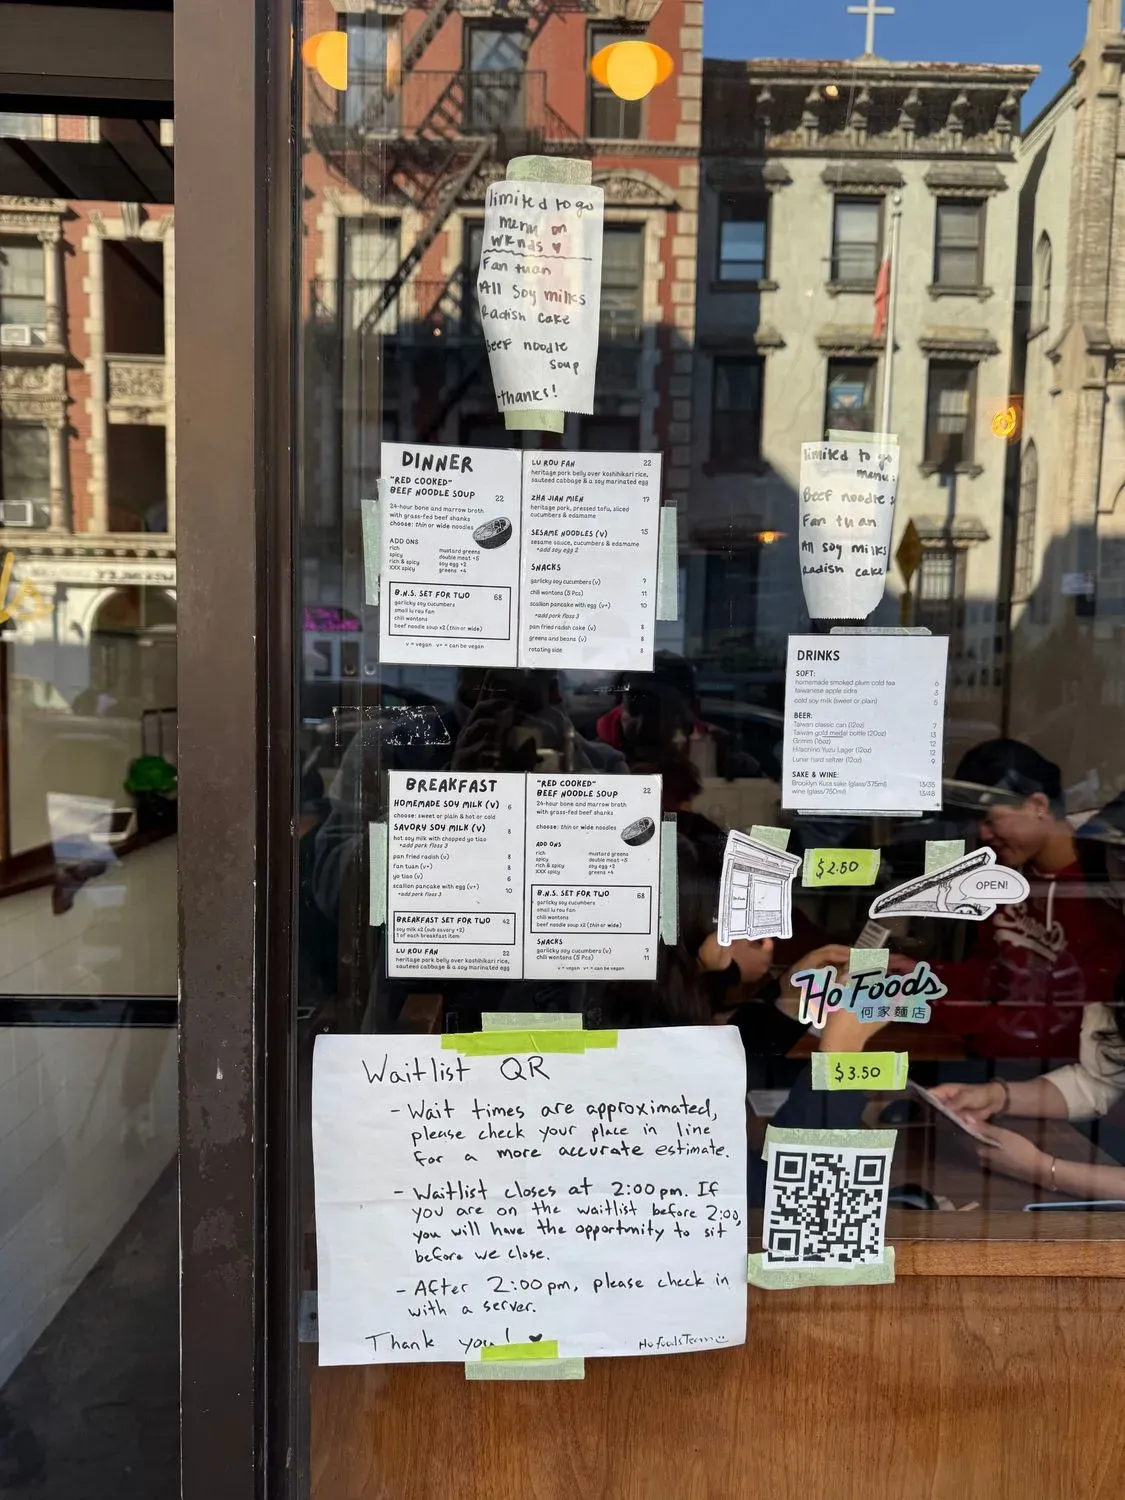 limited to go
menu on
wknds ♥
Fan tuan
All Soy milks
Radish cake
Beef noodle
soup
-thanks!
DINNER
"RED COOKED"
BEEF NOODLE SOUP 22
24-hour bone and marrow broth
with grass-fed beef shanks
choose: thin or wide noodles
ADD ONS
rich
spicy
rich & spicy
XXX spicy
mustard greens
double meat +5
soy egg +2
greens +4
B.N.S. SET FOR TWO 68
garlicky soy cucumbers
small lu rou fan
chili wontons
beef noodle soup x2 (thin or wide)
v = vegan v+ = can be vegan
LU ROU FAN 22
heritage pork belly over koshihikari rice,
sauteed cabbage & a soy marinated egg
ZHA JIAN MIEN 17
heritage pork, pressed tofu, sliced
cucumbers & edamame
SESAME NOODLES (V) 15
sesame sauce, cucumbers & edamame
+add soy egg 2
SNACKS
garlicky soy cucumbers (v) 7
chili wontons (5 Pcs) 11
scallion pancake with egg (v+) 10
+add pork floss 3
pan fried radish cake (v) 8
greens and beans (v) 8
rotating side 8
limited to go
menu:
Beef noodle s
Fan tuan
All soy milks
Radish cake
DRINKS
SOFT:
homemade smoked plum cold tea 6
taiwanese apple sidra 3
cold soy milk (sweet or plain) 5
BEER:
Taiwan classic can (12oz) 7
Taiwan gold medal bottle (20oz) 13
Grimm (16oz) 12
Hitachino Yuzu Lager (12oz) 12
Lunar hard seltzer (12oz) 9
SAKE & WINE:
Brooklyn Kura sake (glass/375ml) 13/35
wine (glass/750ml) 13/48
BREAKFAST
HOMEMADE SOY MILK (V) 6
choose: sweet or plain & hot or cold
SAVORY SOY MILK (V) 8
hot soy milk with chopped yo tiao
+add pork floss 3
pan fried radish (v) 8
fan tuan (v+) 8
yo tiao (v) 6
scallion pancake with egg (v+) 10
+add pork floss 3
BREAKFAST SET FOR TWO 42
soy milk x2 (sub savory +2)
1 of each breakfast item
LU ROU FAN 22
heritage pork belly over koshihikari rice,
sauteed cabbage & a soy marinated egg
"RED COOKED"
BEEF NOODLE SOUP 22
24-hour bone and marrow broth
with grass-fed beef shanks
choose: thin or wide noodles
ADD ONS
rich
spicy
rich & spicy
XXX spicy
mustard greens
double meat +5
soy egg +2
greens +4
B.N.S. SET FOR TWO 68
garlicky soy cucumbers
small lu rou fan
chili wontons
beef noodle soup x2 (thin or wide)
SNACKS
garlicky soy cucumbers (v) 7
chili wontons (5 Pcs) 11
v = vegan v+ = can be vegan
$2.50
OPEN!
Ho Foods
何家麵店
$3.50
Waitlist QR
- Wait times are approximated,
please check your place in line
for a more accurate estimate.
- Waitlist closes at 2:00pm. If
you are on the waitlist before 2:00,
you will have the opportunity to sit
before we close.
- After 2:00pm, please check in
with a server.
Thank you! ♥
Ho foods Team